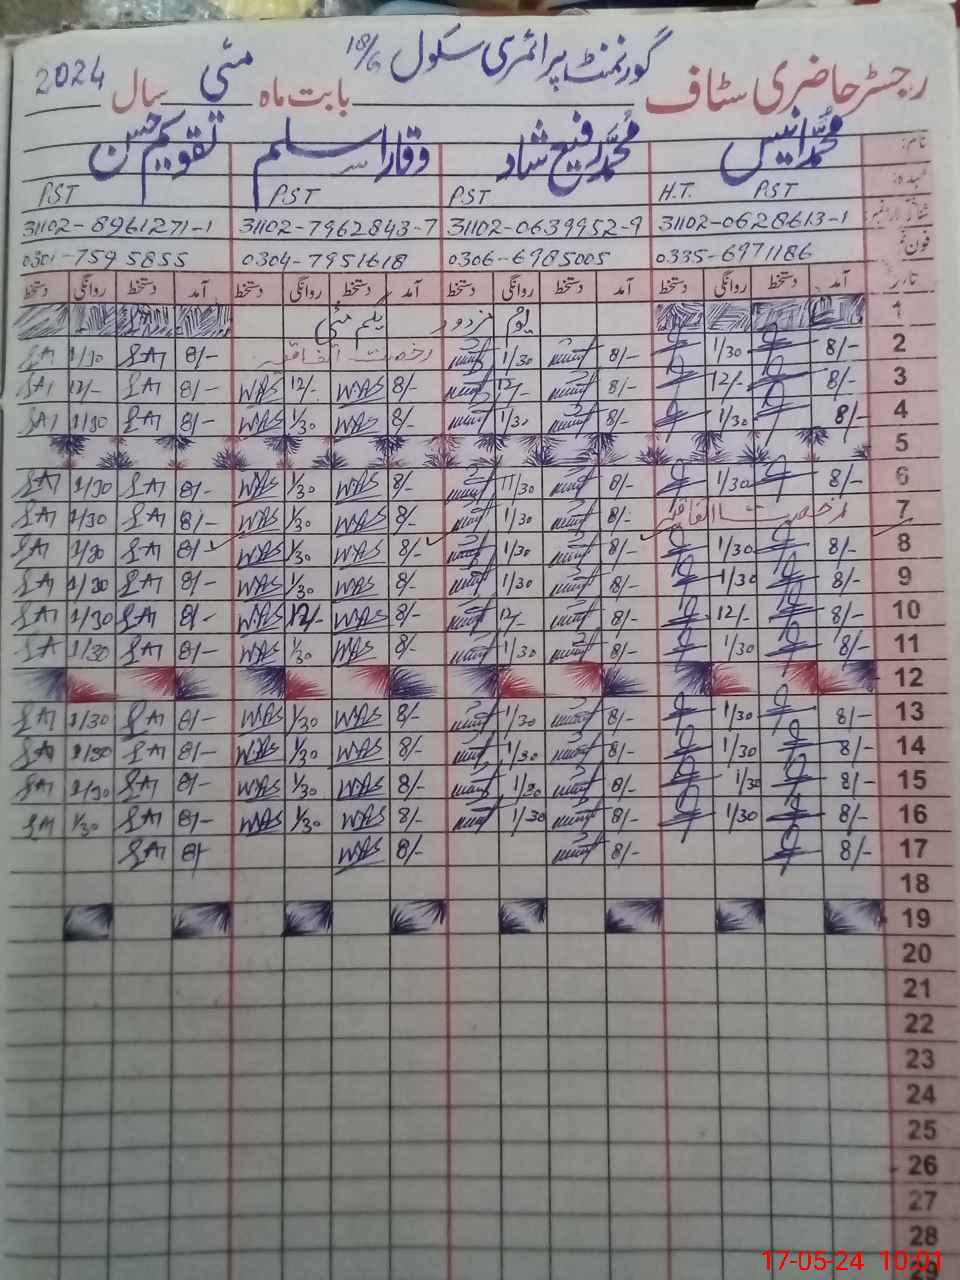 گورنمنٹ پرائمری سکول 18/6
رجسٹر حاضری سٹاف بابت ماہ مئی سال 2024
نام: محمد انیس محمد رفیع شاد وقار اسلم تقویم حسن
عہدہ: H.T. PST PST PST PST
31102-0628613-1 31102-0639952-9 31102-7962843-7 31102-8961271-1
فون نمبر 0335-6971186 0306-6985005 0304-7951618 0301-7595855
تاریخ آمد دستخط روانگی دستخط آمد دستخط روانگی دستخط آمد دستخط روانگی دستخط آمد دستخط روانگی دستخط
1 یوم مزدور یکم مئی
2 8/- 1/30 8/- 1/30 رخصت اتفاقیہ 8/- 1/30
3 8/- 12/- 8/- 12/- 8/- WAS 12/- WAS 8/- 12/-
4 8/- 1/30 8/- 1/30 8/- WAS 1/30 WAS 8/- 1/30
5
6 8/- 1/30 8/- 1/30 8/- WAS 1/30 WAS 8/- 1/30
7 رخصت اتفاقیہ 8/- 1/30 8/- WAS 1/30 WAS 8/- 1/30
8 8/- 1/30 8/- 1/30 8/- WAS 1/30 WAS 8/- 1/30
9 8/- 1/30 8/- 1/30 8/- WAS 1/30 WAS 8/- 1/30
10 8/- 12/- 8/- 12/- 8/- WAS 12/- WAS 8/- 1/30
11 8/- 1/30 8/- 1/30 8/- WAS 1/30 WAS 8/- 1/30
12
13 8/- 1/30 8/- 1/30 8/- WAS 1/30 WAS 8/- 1/30
14 8/- 1/30 8/- 1/30 8/- WAS 1/30 WAS 8/- 1/30
15 8/- 1/30 8/- 1/30 8/- WAS 1/30 WAS 8/- 1/30
16 8/- 1/30 8/- 1/30 8/- WAS 1/30 WAS 8/- 1/30
17 8/- 8/- 8/- WAS 8/-
18
19
20
21
22
23
24
25
26
27
28
29
17-05-24 10:01